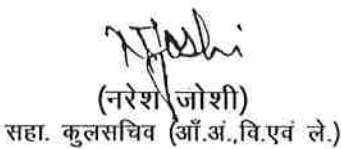 NJoshi
(नरेश जोशी)
सहा. कुलसचिव (आँ.अं.,वि.एवं ले.)